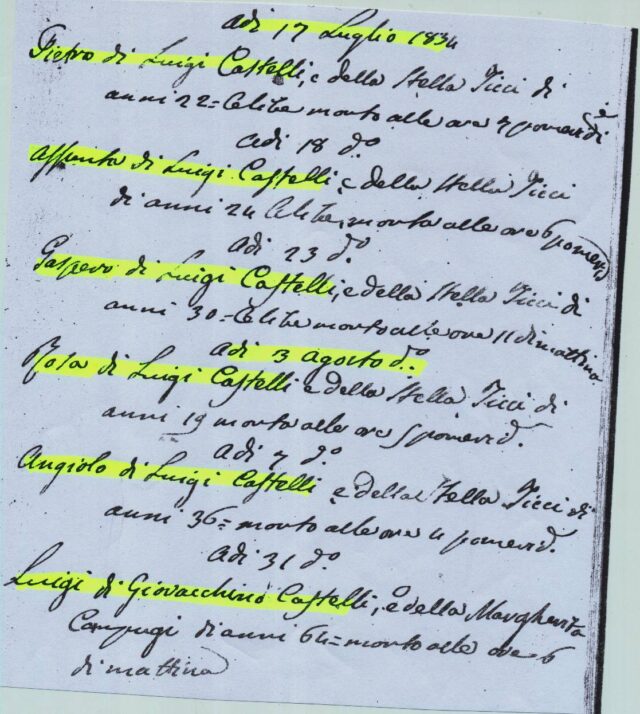 Adi 17 Luglio 1834
Pietro di Luigi Castelli, e della Stella Ticci di
anni 22 = Celibe morto alle ore 7 pomerid.
Adi 18 d.o
Assunta di Luigi Castelli, e della Stella Ticci
di anni 24 Celibe, morta alle ore 6 pomerid.
Adi 23 d.o
Gaspero di Luigi Castelli, e della Stella Ticci di
anni 30 = Celibe morto alle ore 11 di mattina
Adi 3 Agosto d.o
Rosa di Luigi Castelli e della Stella Ticci di
anni 19 morta alle ore 5 pomerid.
Adi 7 d.o
Angiolo di Luigi Castelli e della Stella Ticci di
anni 36 = morto alle ore 4 pomerid.
Adi 31 d.o
Luigi di Giovacchino Castelli, e della Margherita
Campugi di anni 64 = morto alle ore 6
di mattina